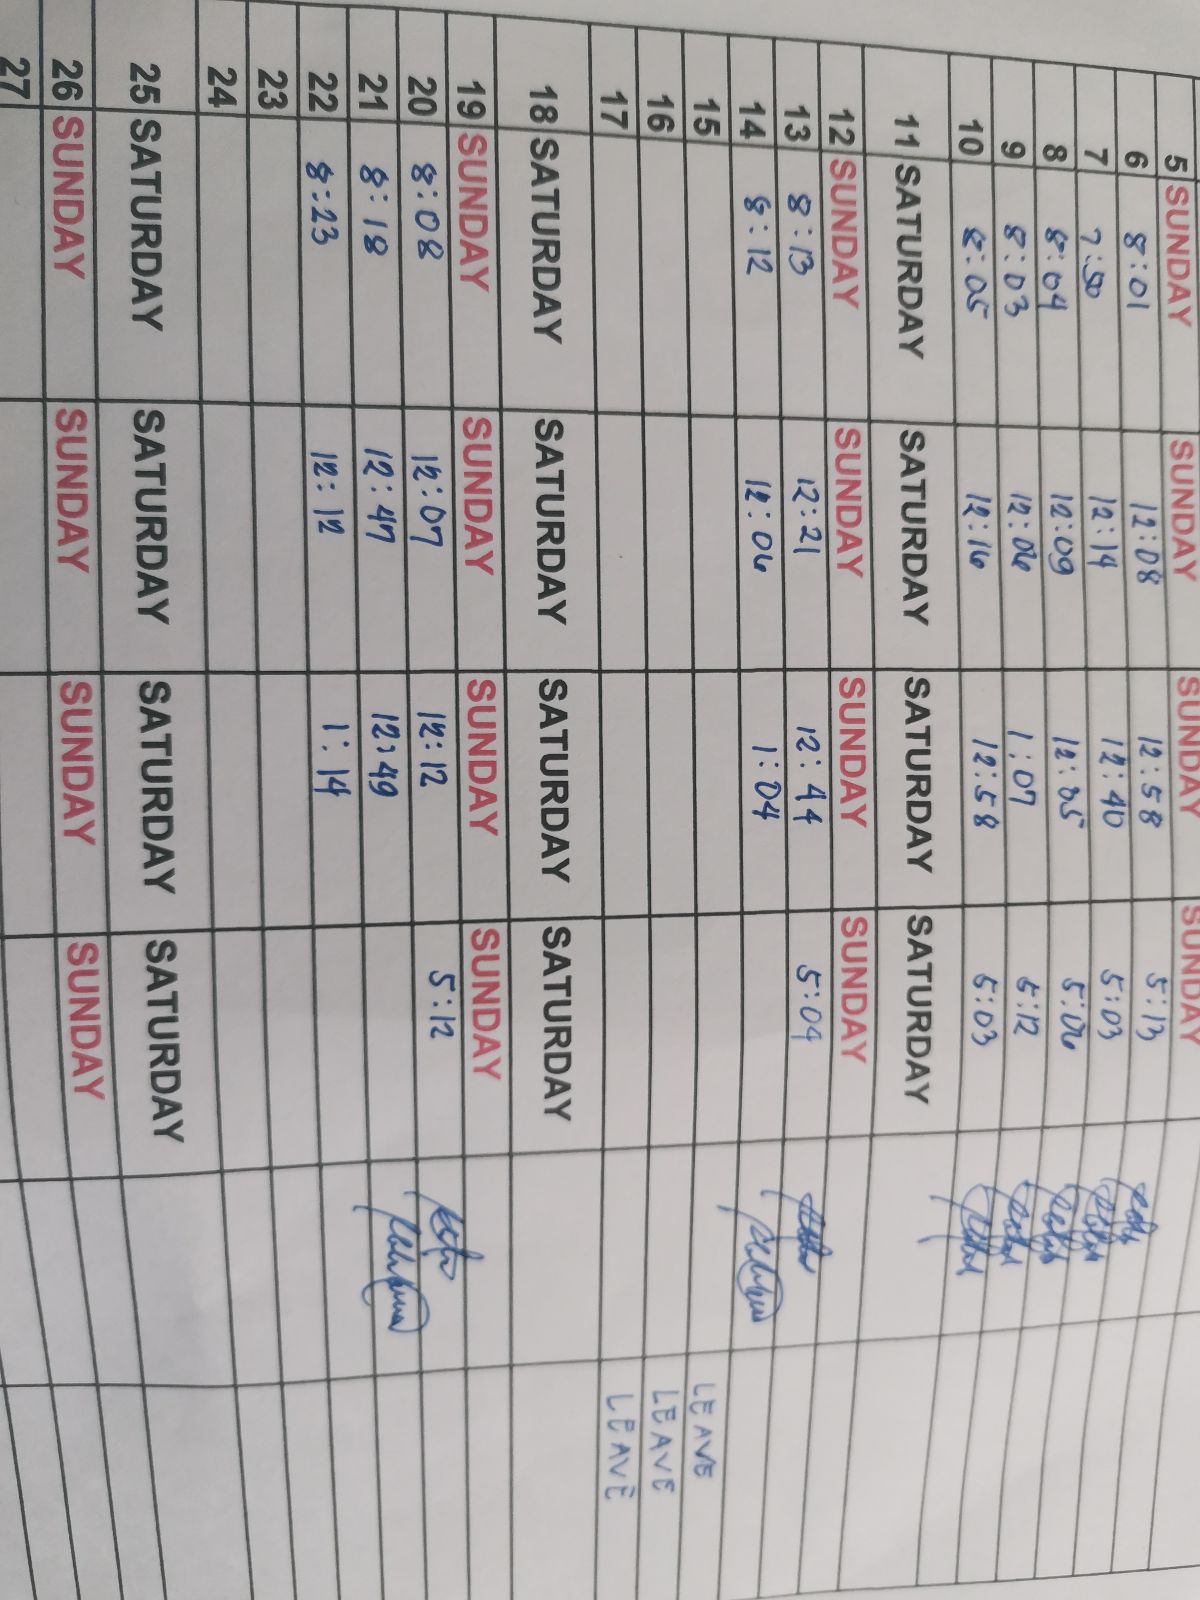 5 SUNDAY SUNDAY SUNDAY SUNDAY
6 8:01 12:08 12:58 5:13
7 7:50 12:14 12:40 5:03
8 8:04 12:09 12:35 5:06
9 8:03 12:06 1:07 5:12
10 8:05 12:16 12:58 5:03
11 SATURDAY SATURDAY SATURDAY SATURDAY
12 SUNDAY SUNDAY SUNDAY SUNDAY
13 8:13 12:21 12:44 5:04
14 8:12 12:06 1:04
15 LEAVE
16 LEAVE
17 LEAVE
18 SATURDAY SATURDAY SATURDAY SATURDAY
19 SUNDAY SUNDAY SUNDAY SUNDAY
20 8:08 12:07 12:12 5:12
21 8:18 12:47 12:49
22 8:23 12:12 1:14
23
24
25 SATURDAY SATURDAY SATURDAY SATURDAY
26 SUNDAY SUNDAY SUNDAY SUNDAY
27